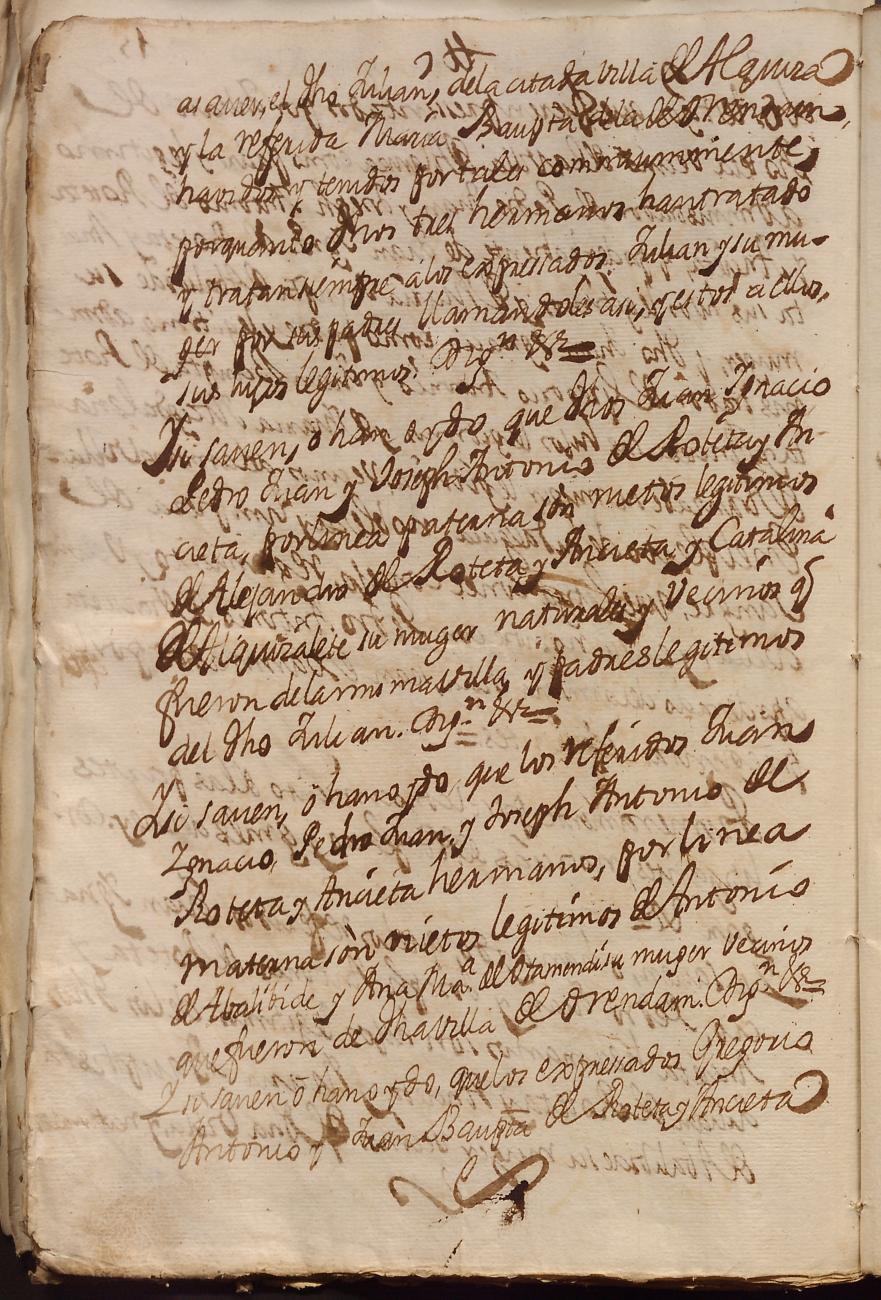 asaver, el dho Julian, dela citada villa de Alquiza
y la referida Maria Baupta dela de Orendain,
havidos y tenidos portales communmente,
porquanto dhos tres hermanos hantratado
y tratan siempre alos expressados Julian y su mu-
ger por sus padres llamandoles asi, y estos a ellos,
sus hijos legitimos. Dign &ª
Ysi saven, ò han oydo que dhos Juan Ygnacio
Pedro Juan y Joseph Antonio de Roteta y An-
cieta, porlinea paterna sòn nietos legitimos
de Alejandro de Roteta y Ancieta, y Catalina
de Alquizalete su muger naturales y vecinos q
fueron dela misma villa, y padres legitimos
del dho Julian. Dign &ª
Ysi saven, ò hanoydo que los referidos Juan
Ygnacio, Pedro Juan, y Joseph Antonio de
Roteta y Ancieta hermanos, por linea
materna sòn nietos legitimos de Antonio
de Abalibide y Ana Mª de Otamendi su muger vecinos
que fueron de dha villa de Orendain. Dign &ª
Ysi saven ò hanoydo, quelos expressados Gregorio
Antonio y Juan Baupta de Roteta y Ancieta